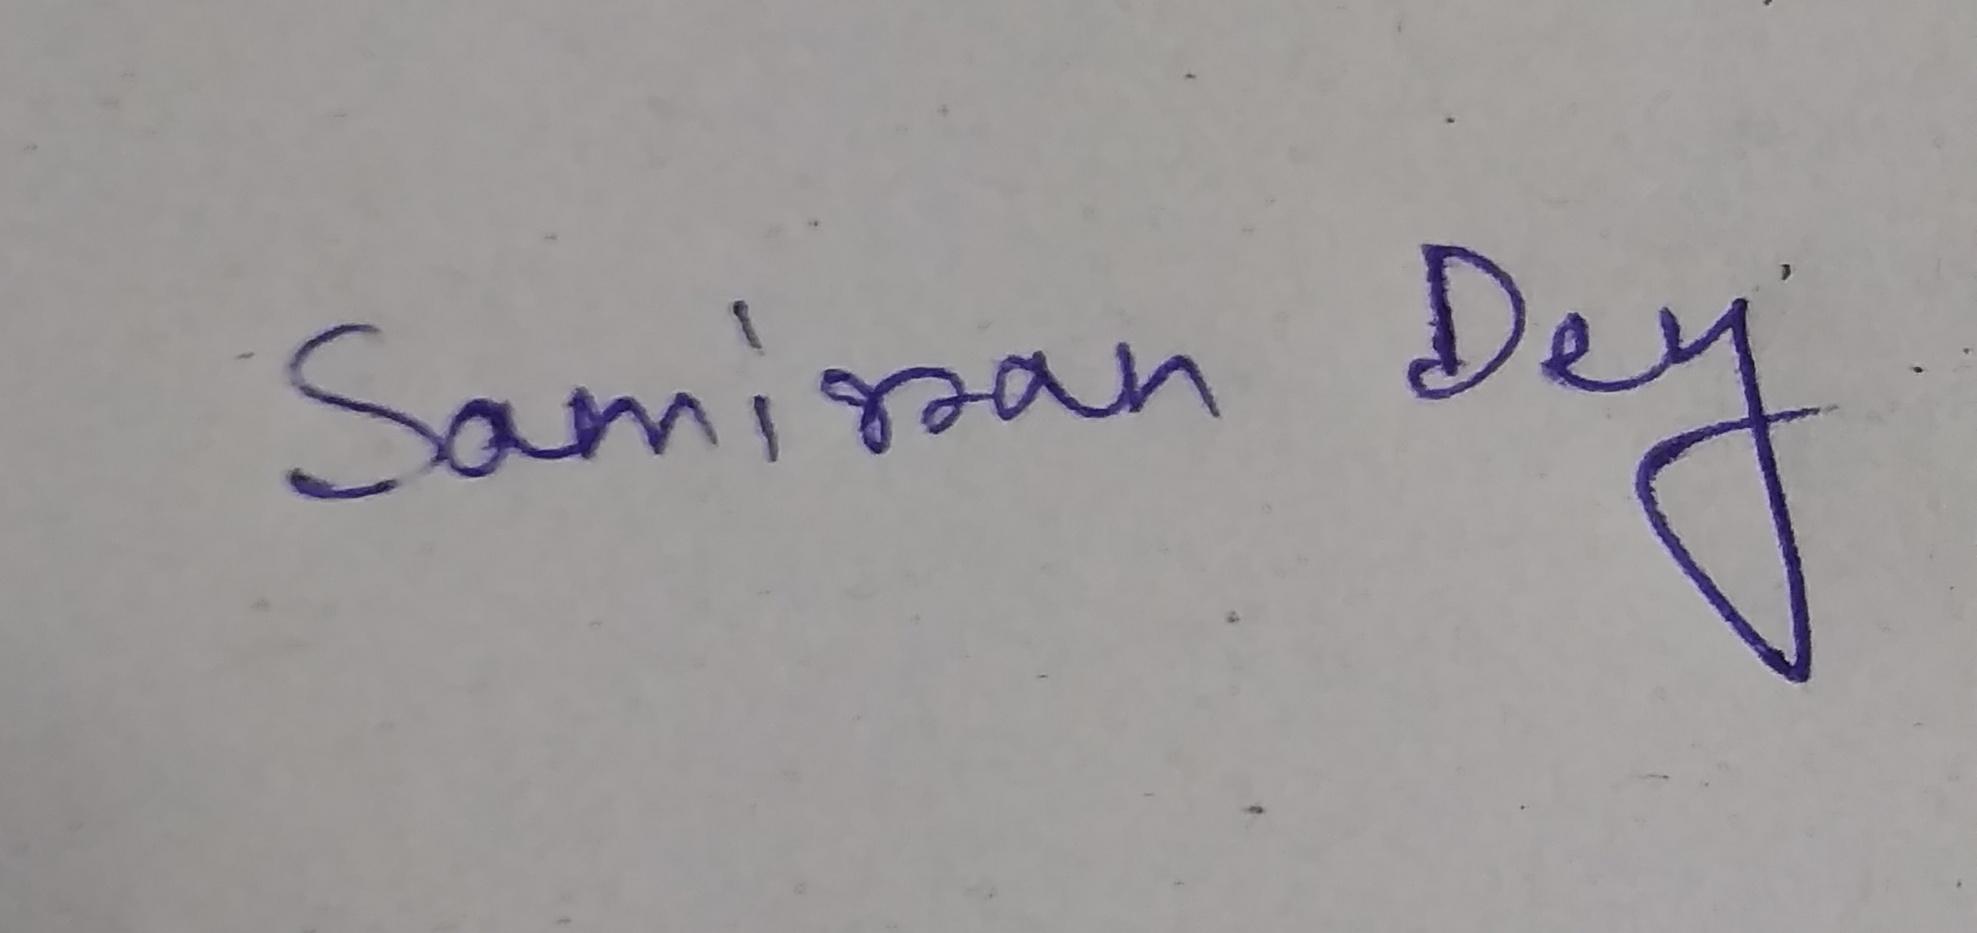 Samiran Dey